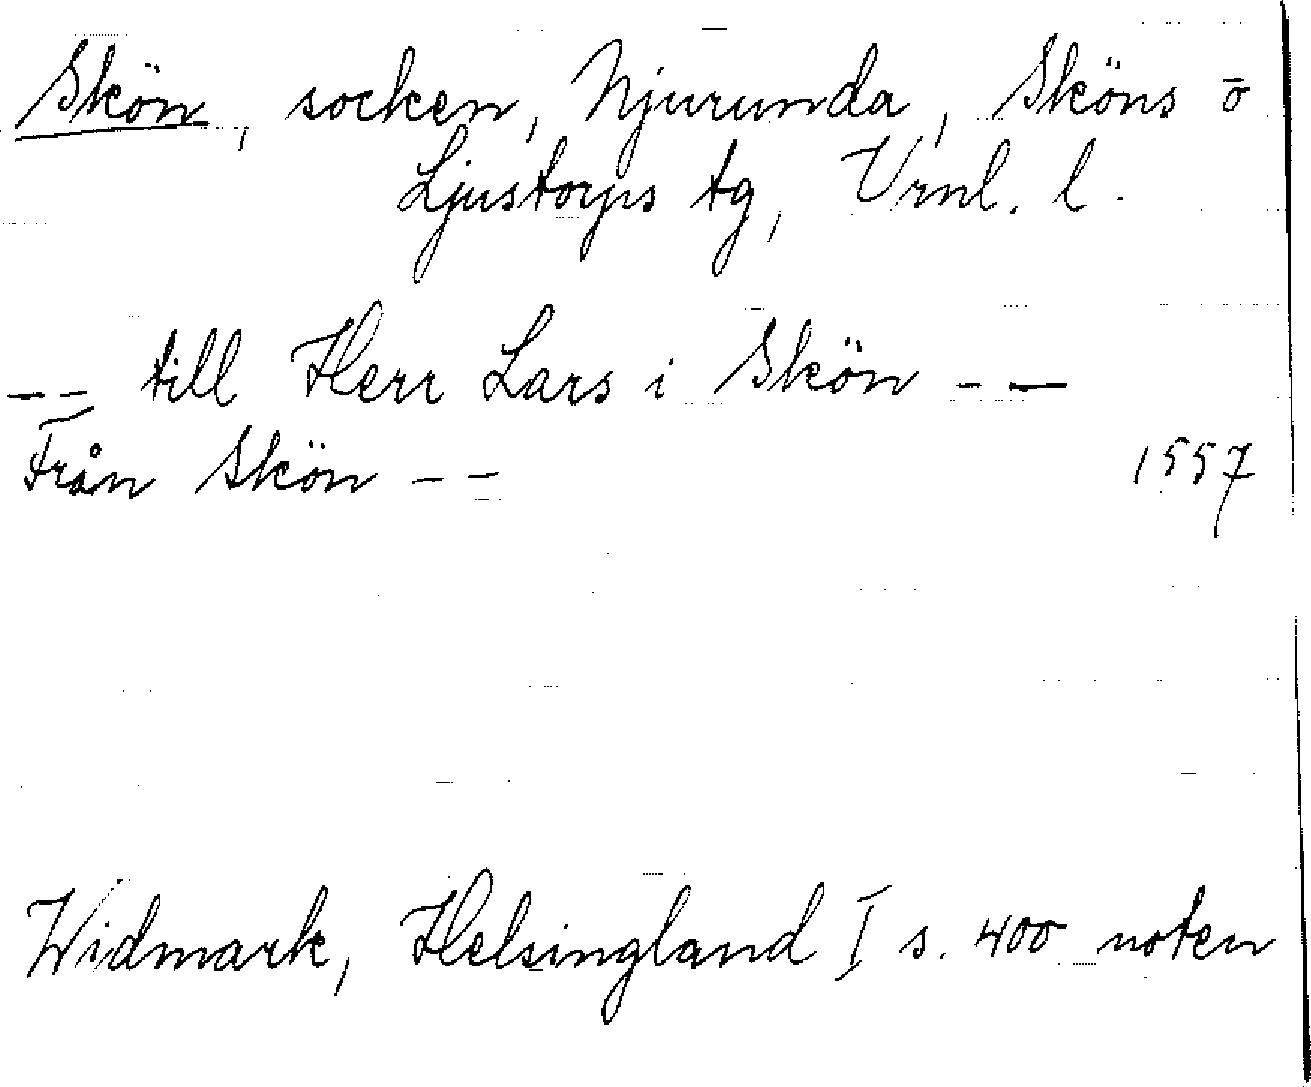 Skön, socken, Njurunda, Sköns o
Ljustorps tg, Vrnl. l.
-- till Herr Lars i Skön --
Från Skön -- 1557
Widmark, Helsingland I s. 400 noten